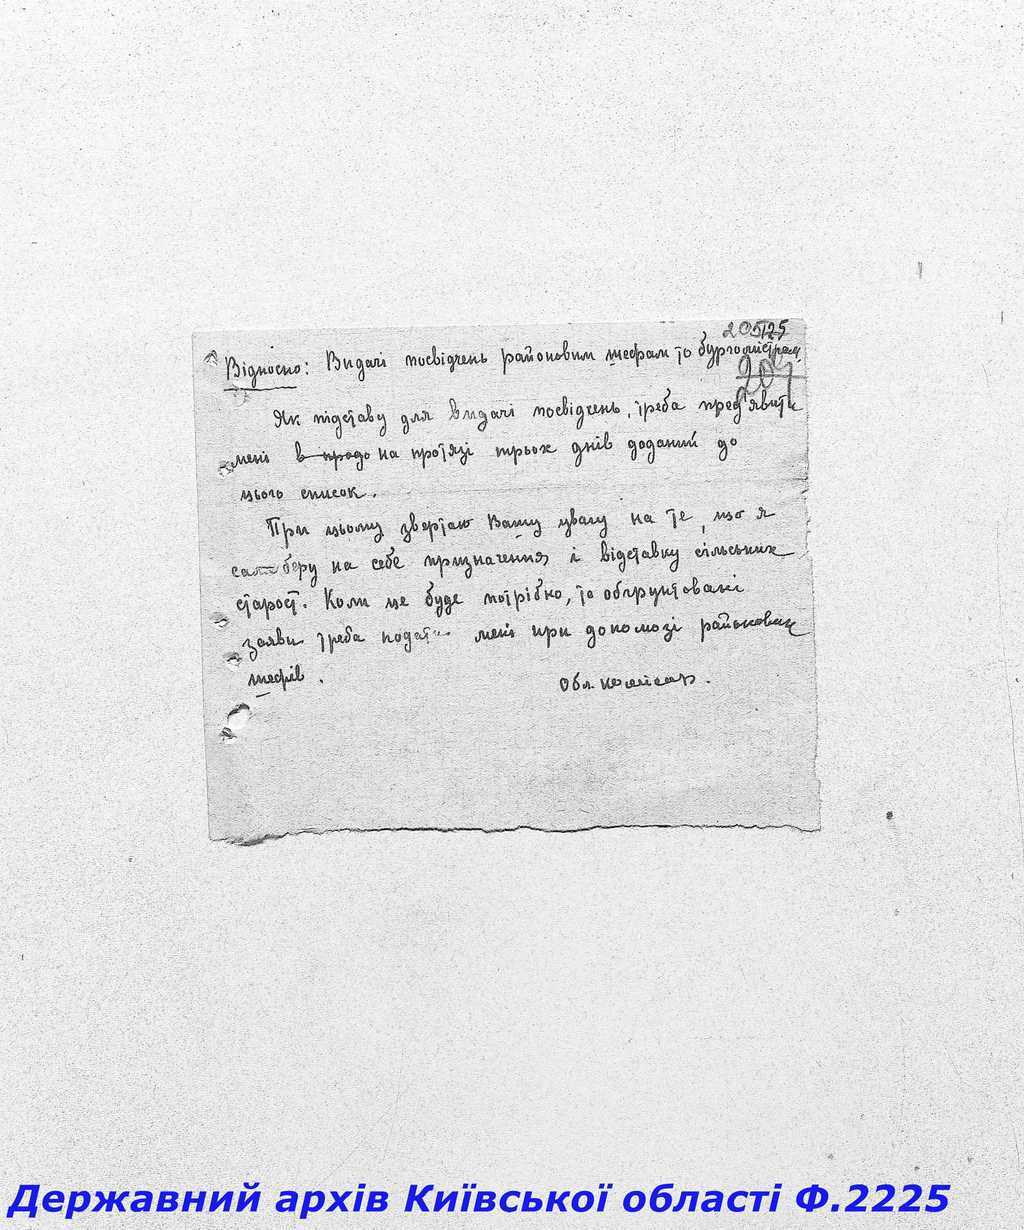 205 125
209
Відносно: Видачі посвідчень районовим шефам та бургомістрам
Як підставу для видачі посвідчень, треба пред'явити
мені в продо на протязі трьох днів доданий до
цього список.
При цьому звертаю Вашу увагу на те, що я
сам беру на себе призначення і відставку сільських
старост. Коли це буде потрібно, то обґрунтовані
заяви треба подати мені при допомозі районових
шефів.
Обл. комісар.
Державний архів Київської області Ф.2225